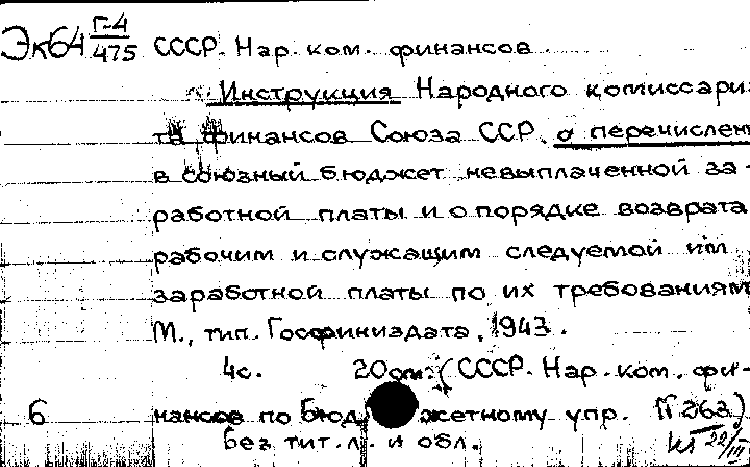 Эк64 Г-4/475 СССР. Нар. ком. финансов
Инструкция Народного комиссариа
та финансов Союза ССР о перечислени
в союзный бюджет невыплаченной за-
работной платы и о порядке возврата
рабочим и служащим следуемой им
заработной платы по их требованиям
М., тип. Госфиниздата, 1943.
4с. 20см. (СССР. Нар. ком. фи-
6 нансов по бюджетному упр. № 263)
без тит. л. и обл.